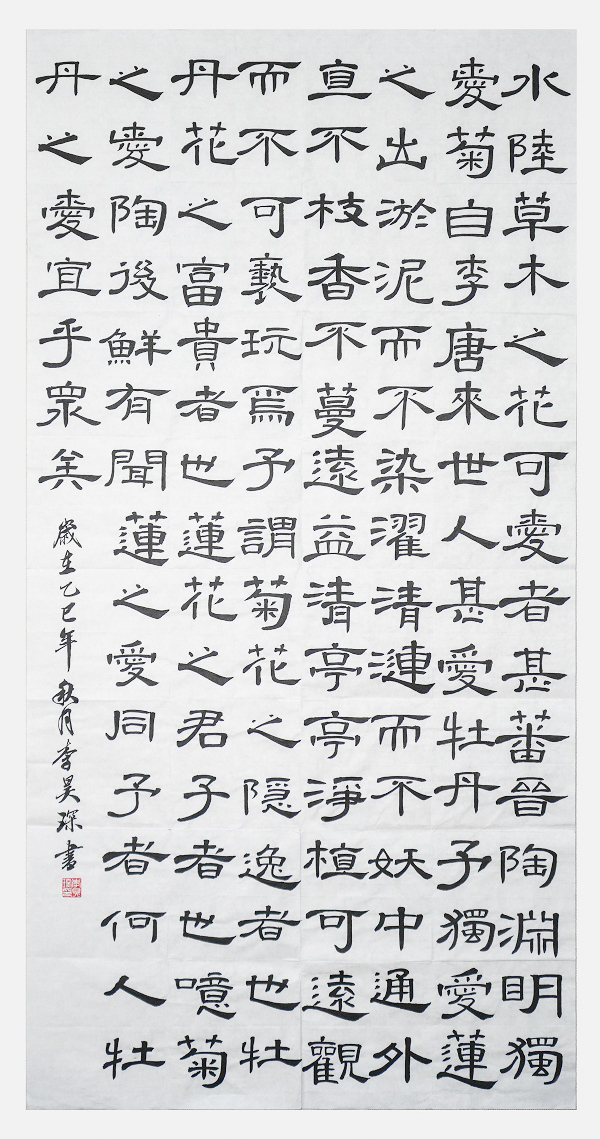 水陸草木之花可愛者甚蕃晉陶淵明獨
愛菊自李唐來世人甚愛牡丹予獨愛蓮
之出淤泥而不染濯清漣而不妖中通外
直不枝香不蔓遠益清亭亭淨植可遠觀
而不可褻玩焉予謂菊花之隱逸者也牡
丹花之富貴者也蓮花之君子者也噫菊
之愛陶後鮮有聞蓮之愛同予者何人牡
丹之愛宜乎眾矣
歲在乙巳年秋月李昊琛書